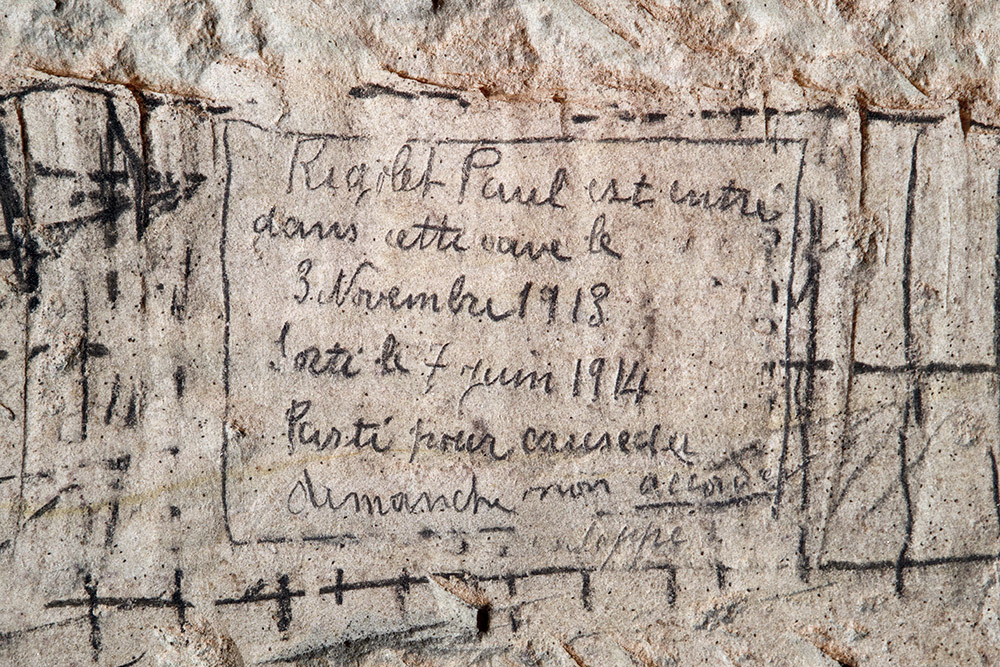 Rigolet Paul est entré
dans cette cave le
3 Novembre 1913
Sorti le 7 juin 1914
Parti pour cause du
dimanche non accordé